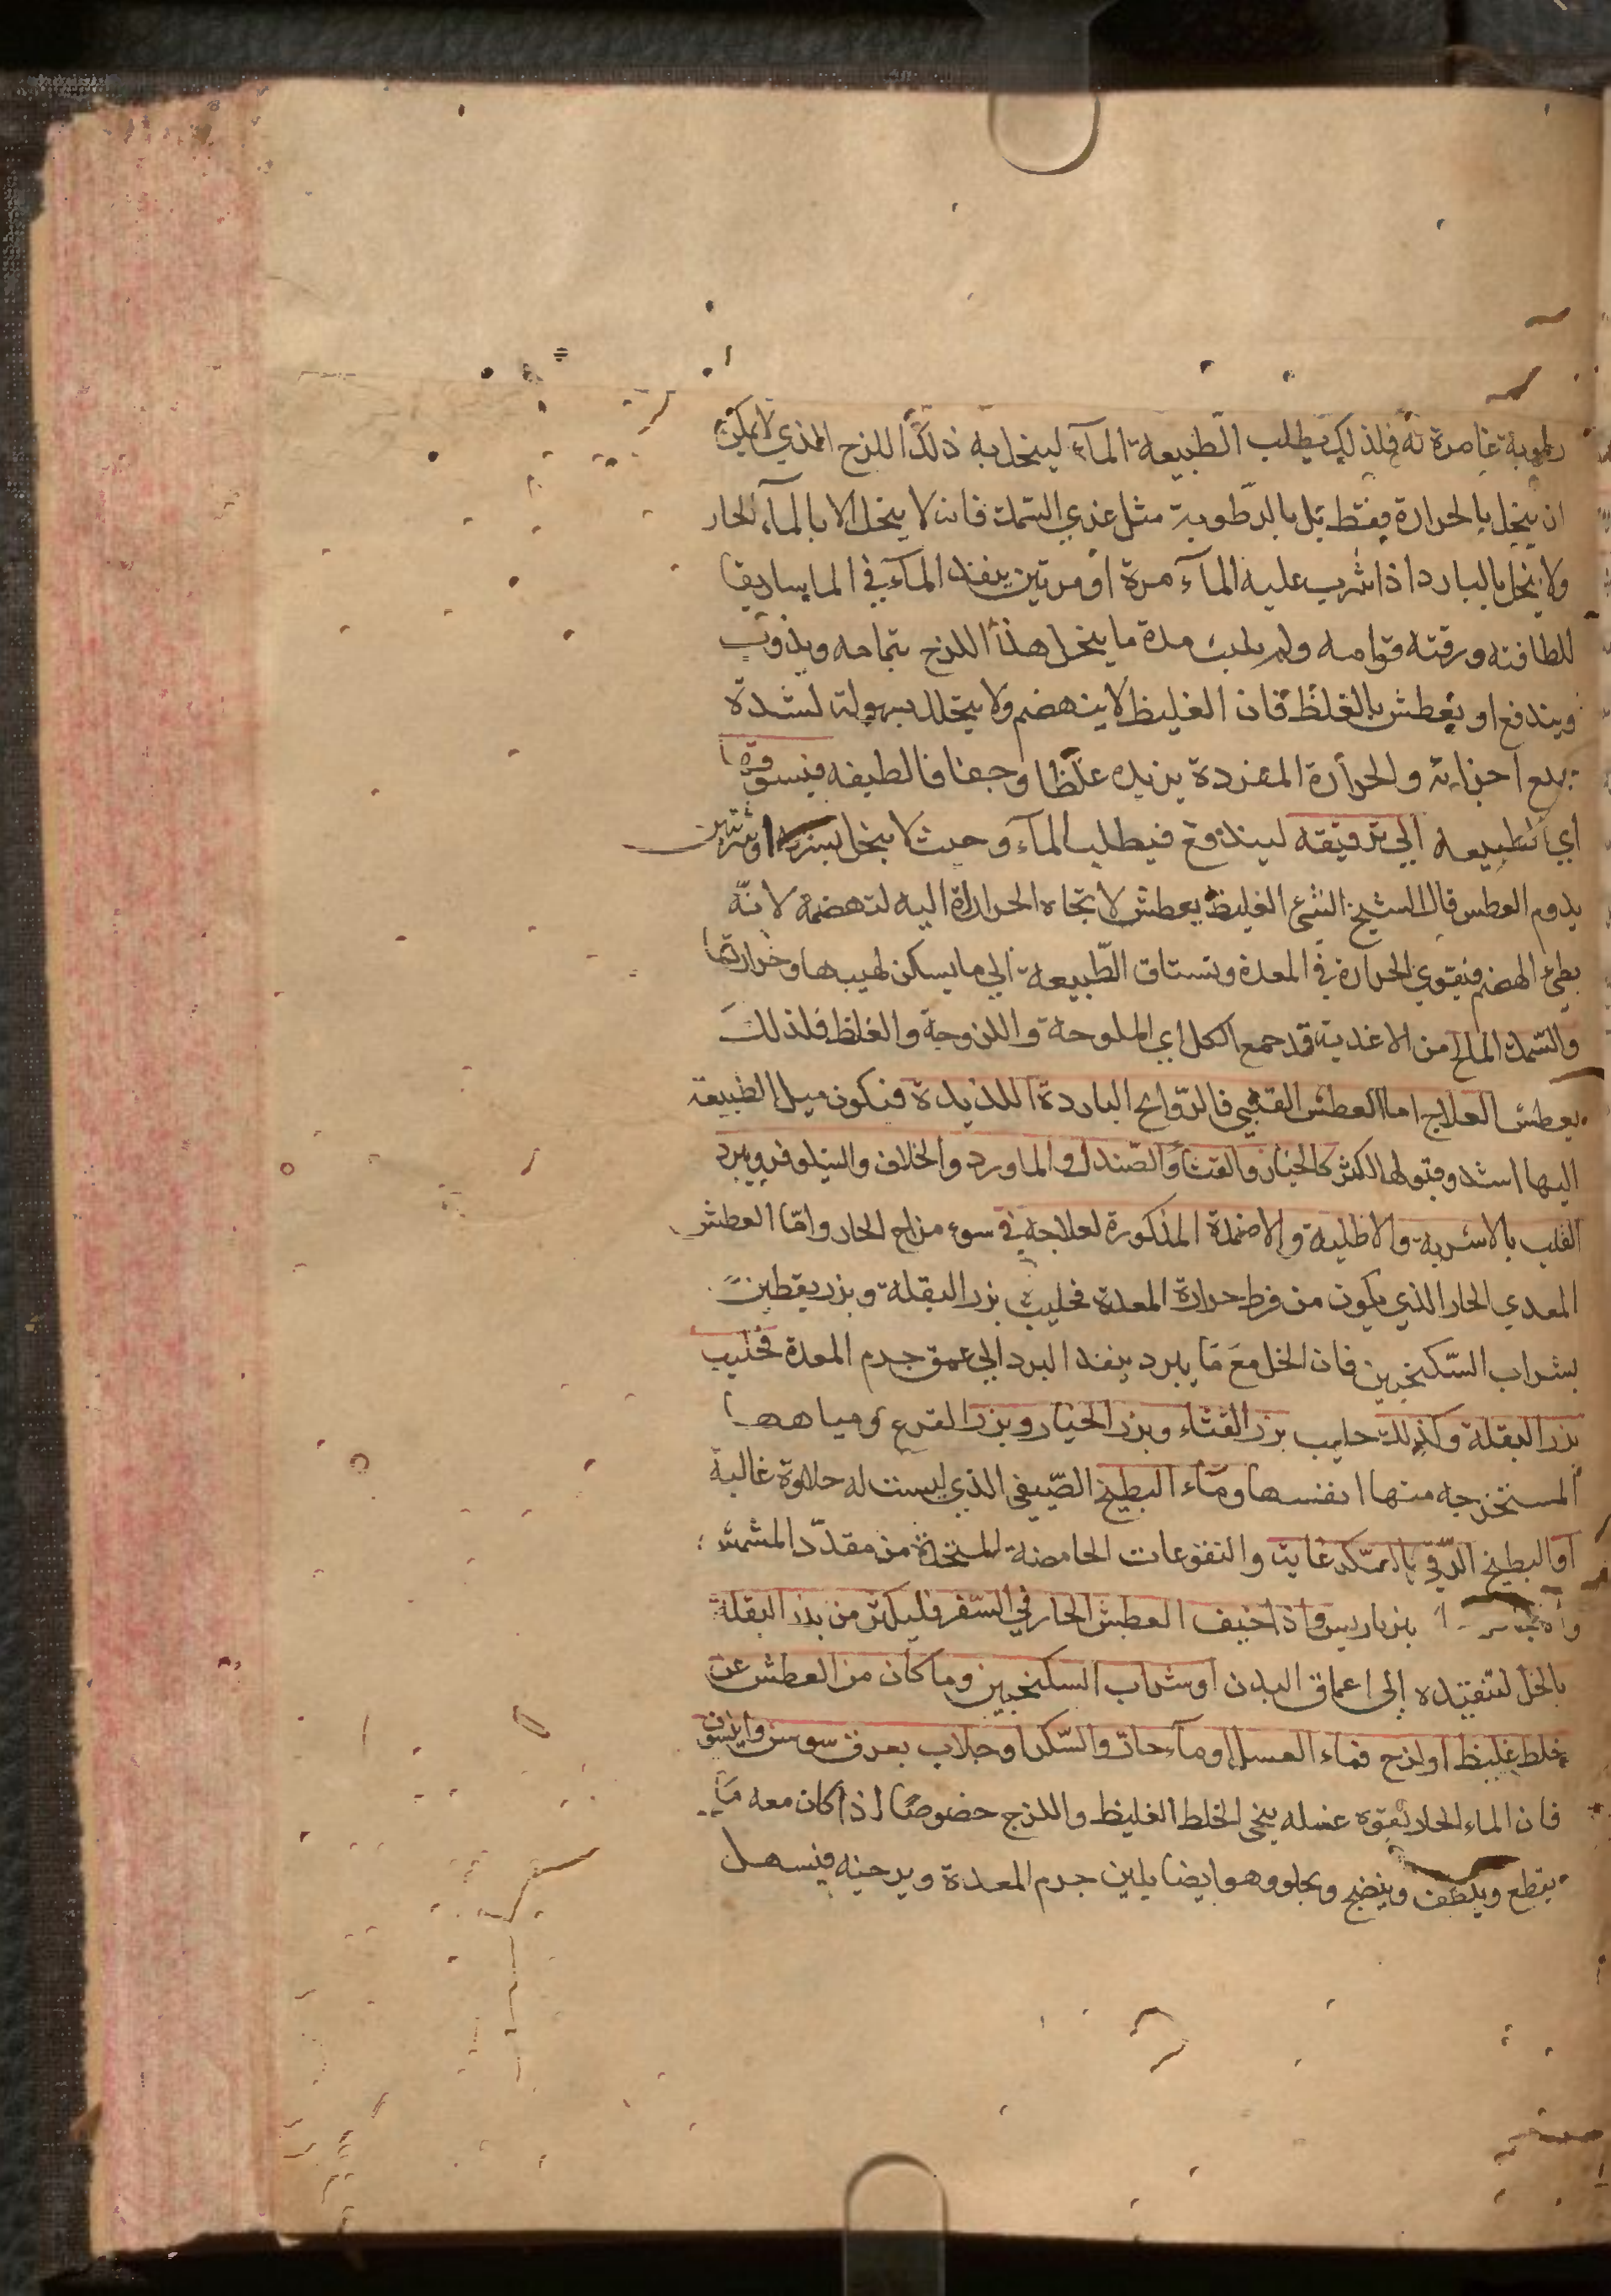 رطوبة غامرة له فلذلك يطلب الطبيعة المآء لينحل به ذلك اللزج الذي لا يمكن
ان ينحل بالحرارة فقط بل بالرطوبة مثل غري السمك فانه لا ينحل الا بالمآء الحار
ولا ينحل بالبارد اذا شرب عليه المآء مرة او مرتين ينفذ المآء في الماساريقا
للطافته ورقته قوامه ولم يلبث مدة ما ينحل هذا اللزج بتمامه ويذوب
ويندفع او يعطش بالغلظ فان الغليظ لا ينهضم ولا يتحلل بسهولة لشدة
اجزائه والحرارة المفردة يزيده غلظا وجفافا لطيفه فيسوقها
اي الطبيعة الي ترقيقه ليندفع فيطلب المآء وحيث لا ينحل
يدوم العطس قال الشيخ الشئ الغليظ يعطش لاتجاه الحرارة اليه لتهضمه لانّه
بطئ الهضم فيقوي الحرارة في المعدة وتستاق الطّبيعة الي ما يسكن لهيبها وحرارتها
والسّمك المالح من الاغدية قد جمع الكل اي الملوحة واللزوجة والغلظ فلذلك
يعطش العلاج اما العطش القلبي فالرّوايح الباردة اللذيدة فنكون ميل الطبيعة
اليها اشد وقبولها اكثر كالخيار والقثا والصّندل والماورد والخلاف والنيلوفر ويبرد
القلب بالاشربة والاطلية والاضمدة المذكورة لعلاجه في سوء مزاج الحار وامّا العطش
المعدي الحار الذي يكون من فرط حرارة المعدة فحليب بزر البقلة وبزر يقطين
بشراب السّكنجبين فان الخل مع ما يبرد ينفذ البرد الي عمق جرم المعدة فحليب
بزر البقلة وكذلك حليب بزر القثاء وبزر الخيار وبزر القرع ومياهها
المستخرجه منها انفسها ومآء البطيخ الصّيفي الذي ليست له حلاوة غالبة
او البطيخ الرّقي بالسّكر غاية والنقوعات الحامضة المتخذة من مقدّد المشمش
بزباريس واذا خيف العطش الحار في السّفر فليكثر من بذر البقلة
بالخل لتنفيذه إلى اعماق البدن او شراب السكنجبين وما كان من العطش عن
خلط غليظ او لزج فماء العسل او مآء حارّ والسّكر او جلاب بعرق سوس وانيسون
فان الماء الحار بقوة غسله ينحى الخلط الغليظ واللزج خصوصًا اذا كان معه مَا
يقطع ويلطف وينضج ويجلو وهو ايضا يلين جرم المعدة ويرخيه فيسهل